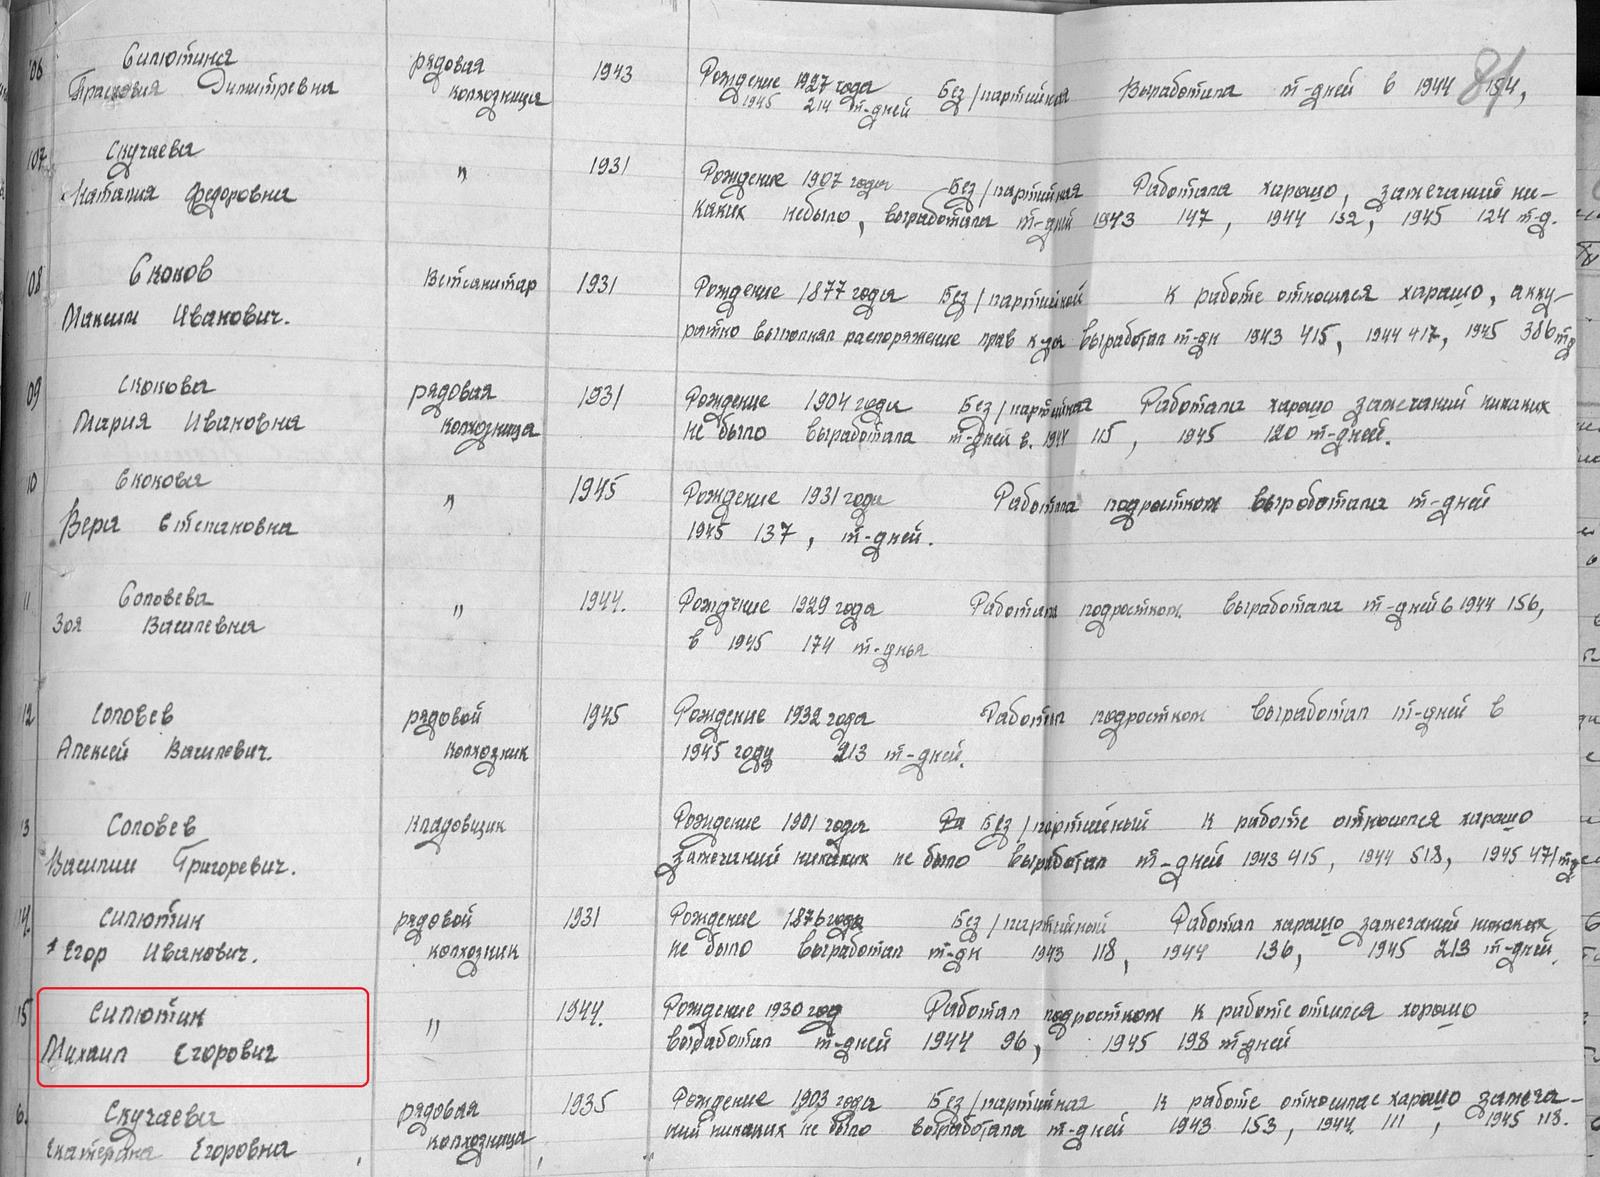 81
106 Силютина рядовая 1943 Рождение 1927 года Без/партийная Выработала т-дней в 1944 154,
Прасковия Димитревна колхозница 1945 214 т-дней
107 Скучаева " 1931 Рождение 1907 года Без/партийная Работала харашо, замечаний ни-
Наталия Федоровна каких небыло, выработала т-дней 1943 147, 1944 132, 1945 124 т-д.
108 Скоков Ветсанитар 1931 Рождение 1877 года Без/партийной К работе относился харашо, акку-
Максим Иванович. ратно выполнял распоряжение прав к-за выработал т-дн 1943 415, 1944 417, 1945 386 тд
09 Скокова рядовая 1931 Рождение 1904 года Без/партийная Работала харашо замечаний никаких
Мария Ивановна колхозница не было выработала т-дней в. 1944 115, 1945 120 т-дней.
10 Скокова " 1945 Рождение 1931 года Работала подростком выработала т-дней
Вера Степановна 1945 137, т-дней.
11 Соловева " 1944. Рождение 1929 года Работала подростком выработала т-дней в 1944 156,
Зоя Василевна в 1945 174 т-дня
12 Соловев рядовой 1945 Рождение 1932 года Работал подростком выработал т-дней в
Алексей Василевич. колхозник 1945 году 213 т-дней.
13 Соловев Кладовщик Рождение 1901 года Без/партийный К работе относился харашо
Василии Григоревич. замечаний никаких не было выработал т-дней 1943 415, 1944 518, 1945 471 тд
14. Силютин рядовой 1931 Рождение 1876 года Без/партийный Работал харашо замечаний никаких
Егор Иванович. колхозник не было выработал т-дн 1943 118, 1944 136, 1945 213 т-дней.
15 Силютин " 1944. Рождение 1930 год Работал подростком к работе отнился харашо
Михаил Егорович выработал т-дней 1944 96, 1945 198 т-дней
6. Скучаева рядовая 1935 Рождение 1903 года Без/партийная К работе относилас харашо замеча-
Екатерина Егоровна колхозница ний никаких не было выработала т-дней 1943 153, 1944. 111, 1945 118.